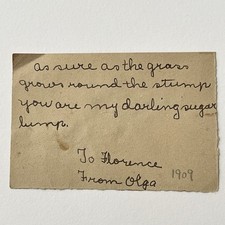 as sure as the grass
grows round the stump
you are my darling sugar
lump.
To Florence
From Olga 1909